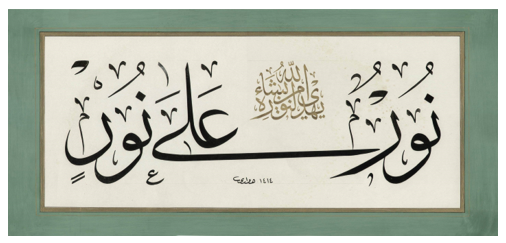 نُورٌ عَلَىٰ نُورٍ
يهدي الله لنوره من يشاء
١٤١٤